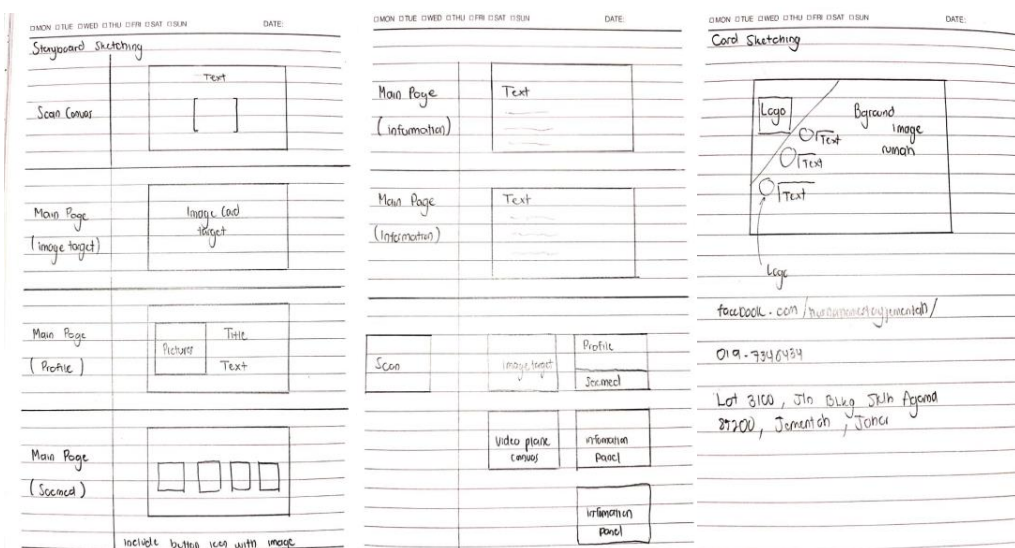 MON TUE WED THU FRI SAT SUN DATE:
Storyboard Sketching
Scan Canvas
Text
Main Page
(image target)
Image Card
target
Main Page
(Profile)
Picture
Title
Text
Main Page
(Socmed)
include button icon with image
MON TUE WED THU FRI SAT SUN DATE:
Main Page
(information)
Text
Main Page
(Information)
Text
Scan
image target
Profile
Socmed
Video plane
canvas
information
Panel
information
panel
MON TUE WED THU FRI SAT SUN DATE:
Card Sketching
Logo
Bground
image
rumah
Text
Text
Text
Logo
facebook.com/
Lot 3100, Jln Blkg Sklh Agama
Jementah, Johor